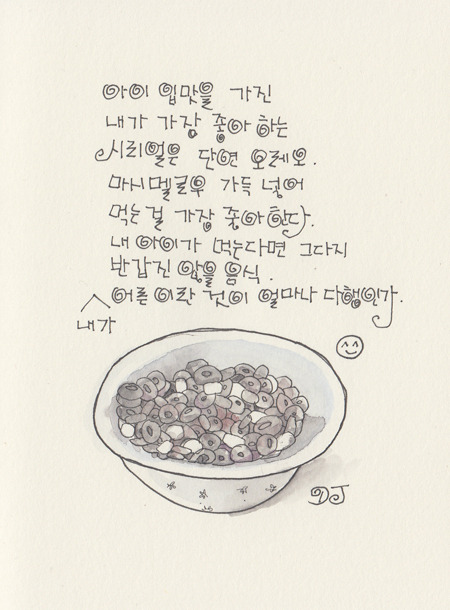 아이 입맛을 가진
내가 가장 좋아 하는
시리얼은 단연 오레오.
마시멜로우 가득 넣어
먹는걸 가장 좋아한다.
내 아이가 먹는다면 그다지
반갑진 않을 음식.
어른 이란 것이 얼마나 다행인가.
내가
DJ